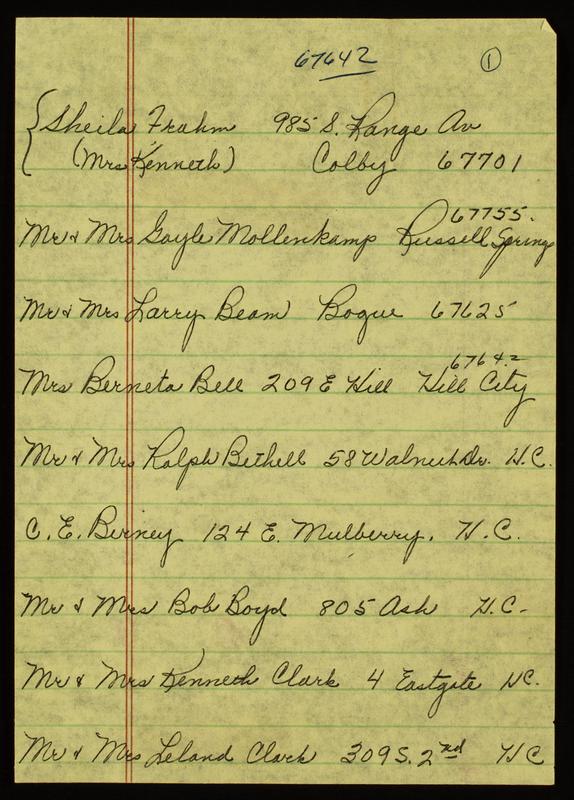 67642 ①
Sheila Frahm 985 S. Range Av
(Mrs Kenneth) Colby 67701
67755.
Mr & Mrs Gayle Mollenkamp Russell Springs
Mr & Mrs Larry Beam Bogue 67625
67642
Mrs Berneta Bell 209 E Hill Hill City
Mr & Mrs Ralph Bethell 58 Walnut Dr. H.C.
C. E. Berney 124 E. Mulberry. H.C.
Mr & Mrs Bob Boyd 805 Ash H.C.
Mr & Mrs Kenneth Clark 4 Eastgate HC.
Mr & Mrs Leland Clark 309 S. 2nd HC